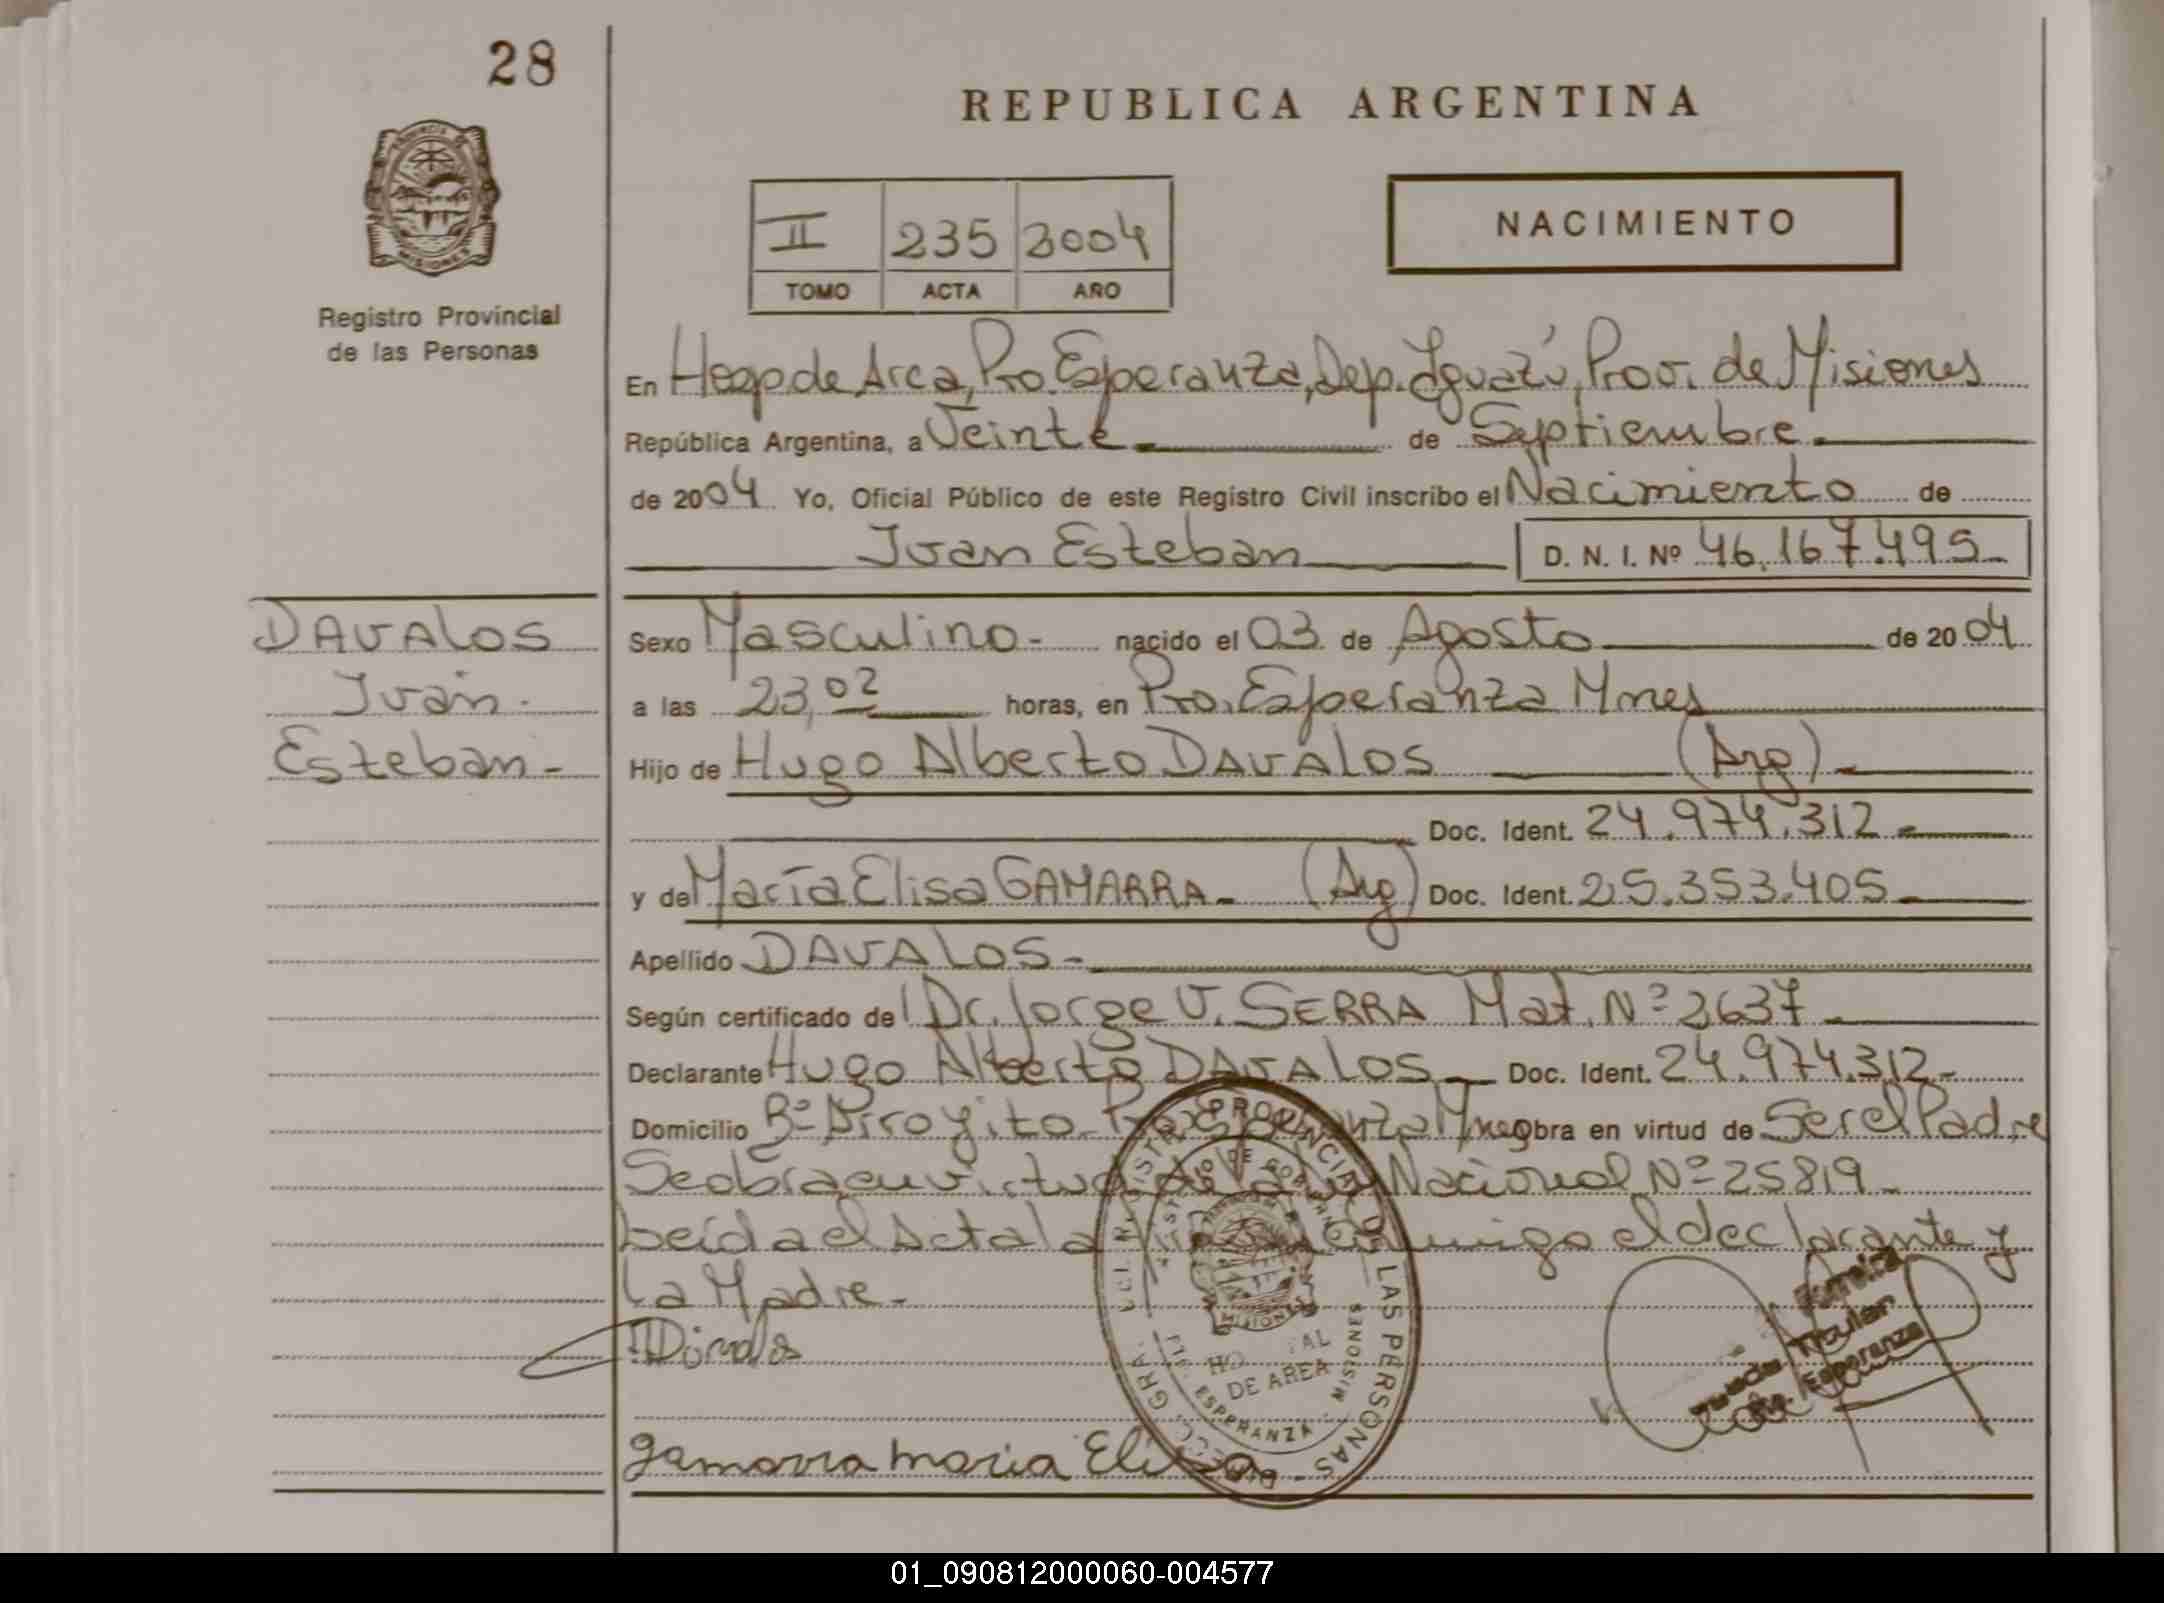 28
REPUBLICA ARGENTINA
NACIMIENTO
II 235 2004
TOMO ACTA AÑO
PROVINCIA DE
MISIONES
Registro Provincial
de las Personas
En Hosp. de Area, Pto. Esperanza, Dep. Iguazú, Prov. de Misiones
República Argentina, a Veinte de Septiembre
de 2004 Yo, Oficial Público de este Registro Civil inscribo el Nacimiento de
Ivan Esteban D. N. I. Nº 46.167.495
DAVALOS
Ivan
Esteban
Sexo Masculino nacido el 03 de Agosto de 2004
a las 23,02 horas, en Pto. Esperanza Mnes
Hijo de Hugo Alberto DAVALOS (Arg)
Doc. Ident. 24.974.312
y de María Elisa GAMARRA (Arg) Doc. Ident. 25.353.405
Apellido DAVALOS
Según certificado de l Dr. Jorge V. SERRA Mat. Nº 2637
Declarante Hugo Alberto DAVALOS Doc. Ident. 24.974.312
Domicilio Bº Arroyito Pto Esperanza Mnes Obra en virtud de Ser el Padre
Se obra en virtud de la Ley Nacional Nº 25819
Leída el Acta la firman conmigo el declarante y
La Madre
gamarra maria Elisa
REGISTRO PROVINCIAL DE LAS PERSONAS
MISIONES
DE AREA
ESPERANZA - MISIONES
Ferreira
Titular
Pto. Esperanza
01_090812000060-004577